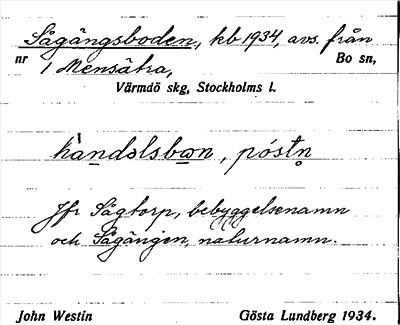 Sågängsboden, kb 1934, avs. från
nr 1 Mensätra, Bo sn,
Värmdö skg, Stockholms l.
hàndəlsbωn, póstn̥
Jfr Sågtorp, bebyggelsenamn
och Sågängen, naturnamn.
John Westin Gösta Lundberg 1934.